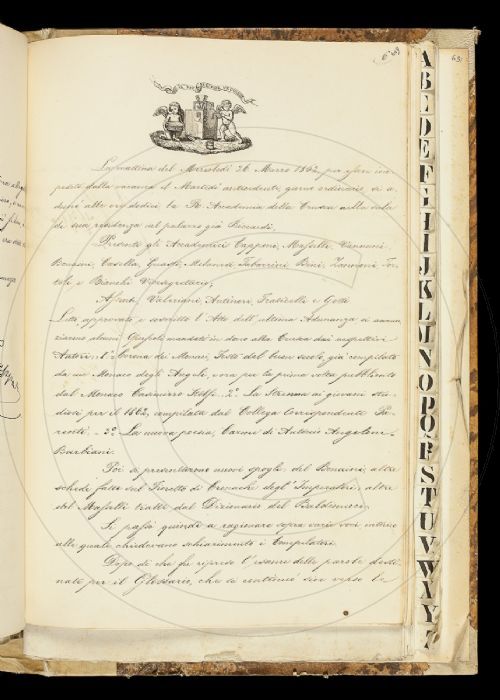 La mattina del Mercoledì 26 Marzo 1862, per esser im-
pedito dalla vacanza il Martedì antecedente, giorno ordinario, si a-
dunò alle ore dodici la R. Accademia della Crusca nella sala
di sua residenza nel palazzo già Riccardi.
Presenti gli Accademici Capponi, Masselli, Vannucci,
Bonaini, Casella, Guasti, Milanesi, Tabarrini, Bini, Zannoni, Tor-
toli e Bianchi Vicesegretario;
Assenti, Valeriani, Antinori, Fraticelli e Gotti.
Letto, approvato e soscritto l'Atto dell'ultima Adunanza si annun-
ziarono alcuni Opuscoli mandati in dono alla Crusca dai rispettivi
Autori: 1.° Corona de' Monaci, Testo del buon secolo, già compilato
da un Monaco degli Angeli, ora per la prima volta pubblicato
dal Monaco Casimirro Stolfi. 2.° La Strenna ai giovani stu-
diosi per il 1862, compilata dal Collega Corrispondente Pa-
renti. - 3.° La nuova poesia, Carme di Antonio Angeloni-
Barbiani.
Poi si presentarono nuovi spogli del Bonaini, altre
schede fatte sul Fioretto di Cronache degl'Imperatori, altre
del Masselli tratte dal Dizionario del Baldinucci.
Si passò quindi a ragionare sopra varie voci, intorno
alle quali chiedevano schiarimento i Compilatori.
Dopo di che fu ripreso l'esame delle parole desti-
nate per il Glossario, che si continuò sin verso le
A
B
C
D
E
F
G
H
I
J
K
L
M
N
O
P
Q
R
S
T
U
V
W
X
Y
Z